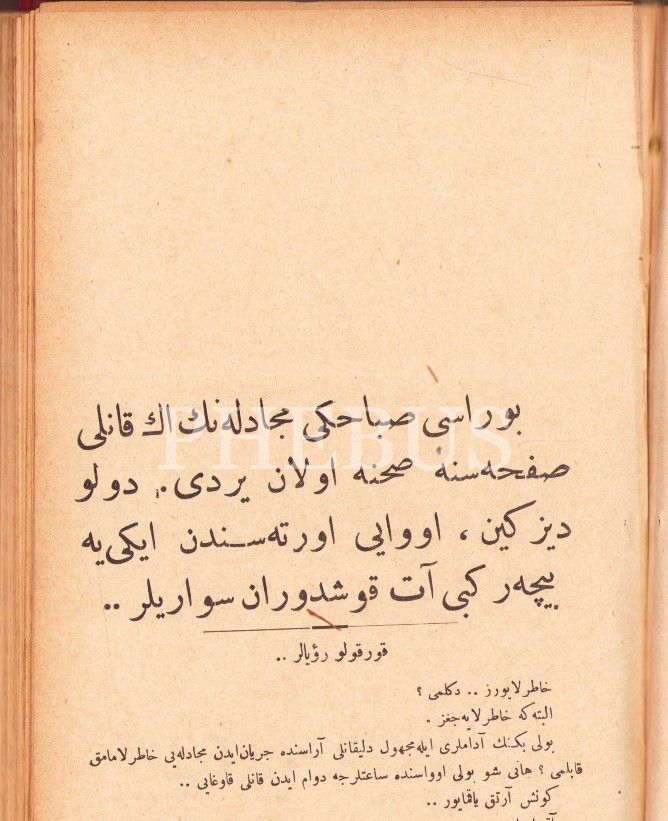 بوراسی صباحکی مجادله‌نك اك قانلی
صفحه‌سنهٔ صحنه اولان یردی. دولو
دیزکین ، اووایی اورته‌سـندن ایکی‌یه
بیچه‌ر کبی آت قوشدوران سواریلر ..
قورقولو رؤیالر ..
خاطرلایورز .. دکلمی ؟
البته‌که خاطرلایه‌جغز .
بولی بکنك آداملری ایله مجهول دلیقانلی آراسنده جریان ایدن مجادله‌یی خاطرلامامق
قابلمی ؟ هانی شو بولی اوواسنده ساعتلرجه دوام ایدن قانلی قاوغایی ..
کونش آرتق یاقمایور ..
PHEBUS